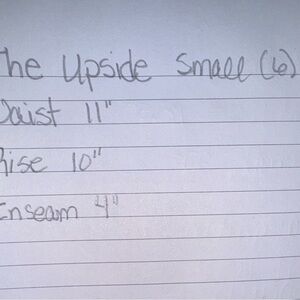 The Upside Small (6)
Waist 11"
Rise 10"
Inseam 4"